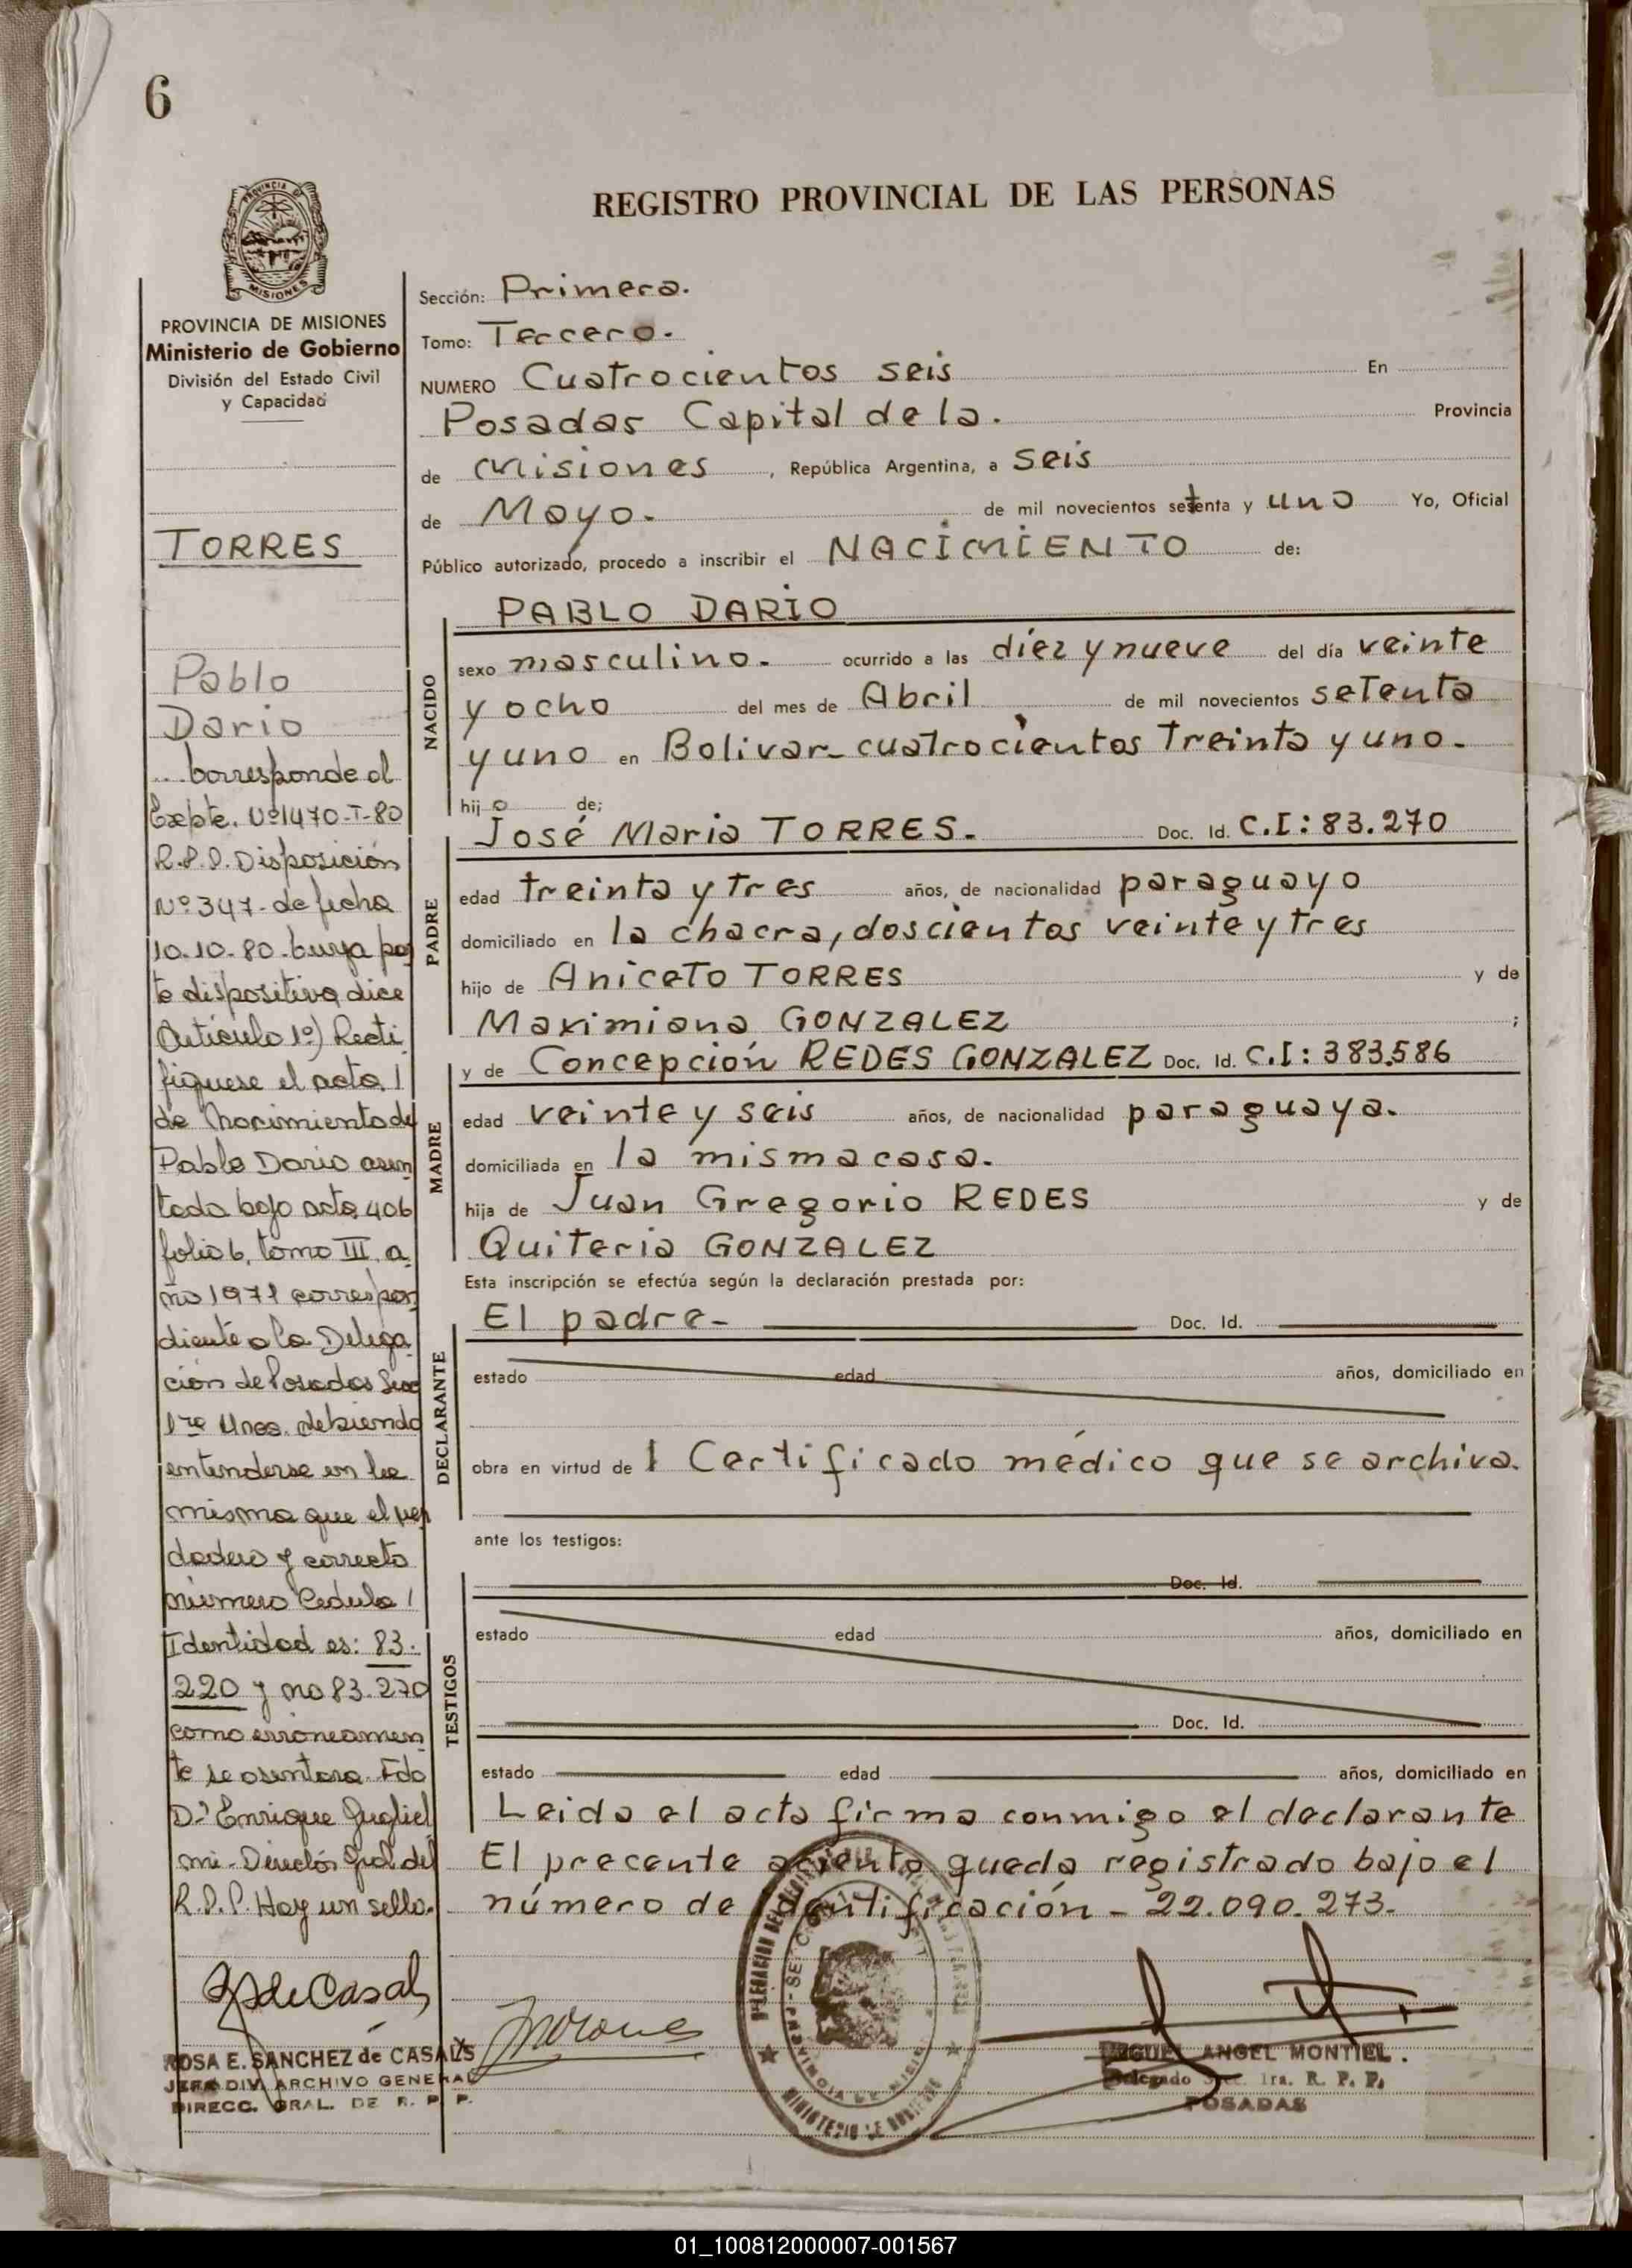 6
REGISTRO PROVINCIAL DE LAS PERSONAS
PROVINCIA DE
MISIONES
PROVINCIA DE MISIONES
Ministerio de Gobierno
División del Estado Civil
y Capacidad
TORRES
Pablo
Dario
.. Corresponde al
Expte. Nº 1470-T-80
R.P.P. Disposición
Nº 347- de fecha
10-10-80. Cuya par
te dispositiva, dice
Artículo 1º) Recti
fíquese el acta
de Nacimiento de
Pablo Dario asen
tada bajo acta 406
folio 6, tomo III, a
ño 1971 correspon
diente a la Delega
ción de Posadas Secc
1ra Mnes. debiendo
entenderse en la
misma que el ver
dadero y correcto
número Cedula
Identidad es: 83.
220 y no 83.270
como erroneamen
te se asentara. Fdo
Dr Enrique Gugliel
mi - Director Gral. del
R.P.P. Hay un sello.
Sección: Primera.
Tomo: Tercero.
NUMERO Cuatrocientos seis En
Posadas Capital de la. Provincia
de Misiones, República Argentina, a seis
de Mayo. de mil novecientos setenta y uno Yo, Oficial
Público autorizado, procedo a inscribir el NACIMIENTO de:
NACIDO
PABLO DARIO
sexo masculino. ocurrido a las diez y nueve del día veinte
y ocho del mes de Abril de mil novecientos setenta
y uno en Bolivar- cuatrocientos treinta y uno.
hijo de;
PADRE
José Maria TORRES. Doc. Id. C.I: 83.270
edad treinta y tres años, de nacionalidad paraguayo
domiciliado en la chacra, doscientos veinte y tres
hijo de Aniceto TORRES y de
Maximiana GONZALEZ ;
MADRE
y de Concepción REDES GONZALEZ Doc. Id. C.I: 383.586
edad veinte y seis años, de nacionalidad paraguaya.
domiciliada en la misma casa.
hija de Juan Gregorio REDES y de
Quiteria GONZALEZ
Esta inscripción se efectúa según la declaración prestada por:
DECLARANTE
El padre- Doc. Id.
estado edad años, domiciliado en
obra en virtud de 1 Certificado médico que se archiva.
ante los testigos:
TESTIGOS
Doc. Id.
estado edad años, domiciliado en
Doc. Id.
estado edad años, domiciliado en
Leida el acta firma conmigo el declarante
El precente aciento queda registrado bajo el
número de identificación - 22.090.273-
ROSA E. SANCHEZ de CASALS
JEFA DIV. ARCHIVO GENERAL
DIRECC. GRAL. DE R. P. P.
MIGUEL ANGEL MONTIEL.
Delegado Secc. 1ra. R. P. P.
POSADAS
01_100812000007-001567